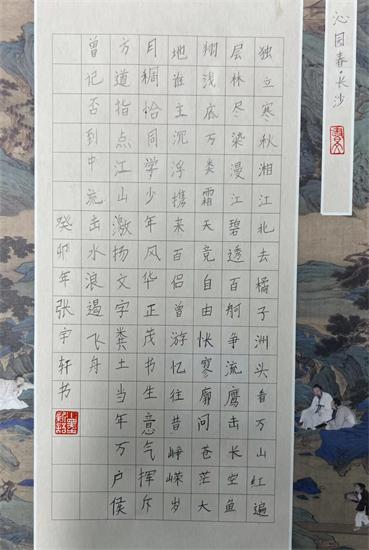 沁园春·长沙
独立寒秋湘江北去橘子洲头看万山红遍
层林尽染漫江碧透百舸争流鹰击长空鱼
翔浅底万类霜天竞自由怅寥廓问苍茫大
地谁主沉浮携来百侣曾游忆往昔峥嵘岁
月稠恰同学少年风华正茂书生意气挥斥
方道指点江山激扬文字粪土当年万户侯
曾记否到中流击水浪遏飞舟
癸卯年张宇轩书